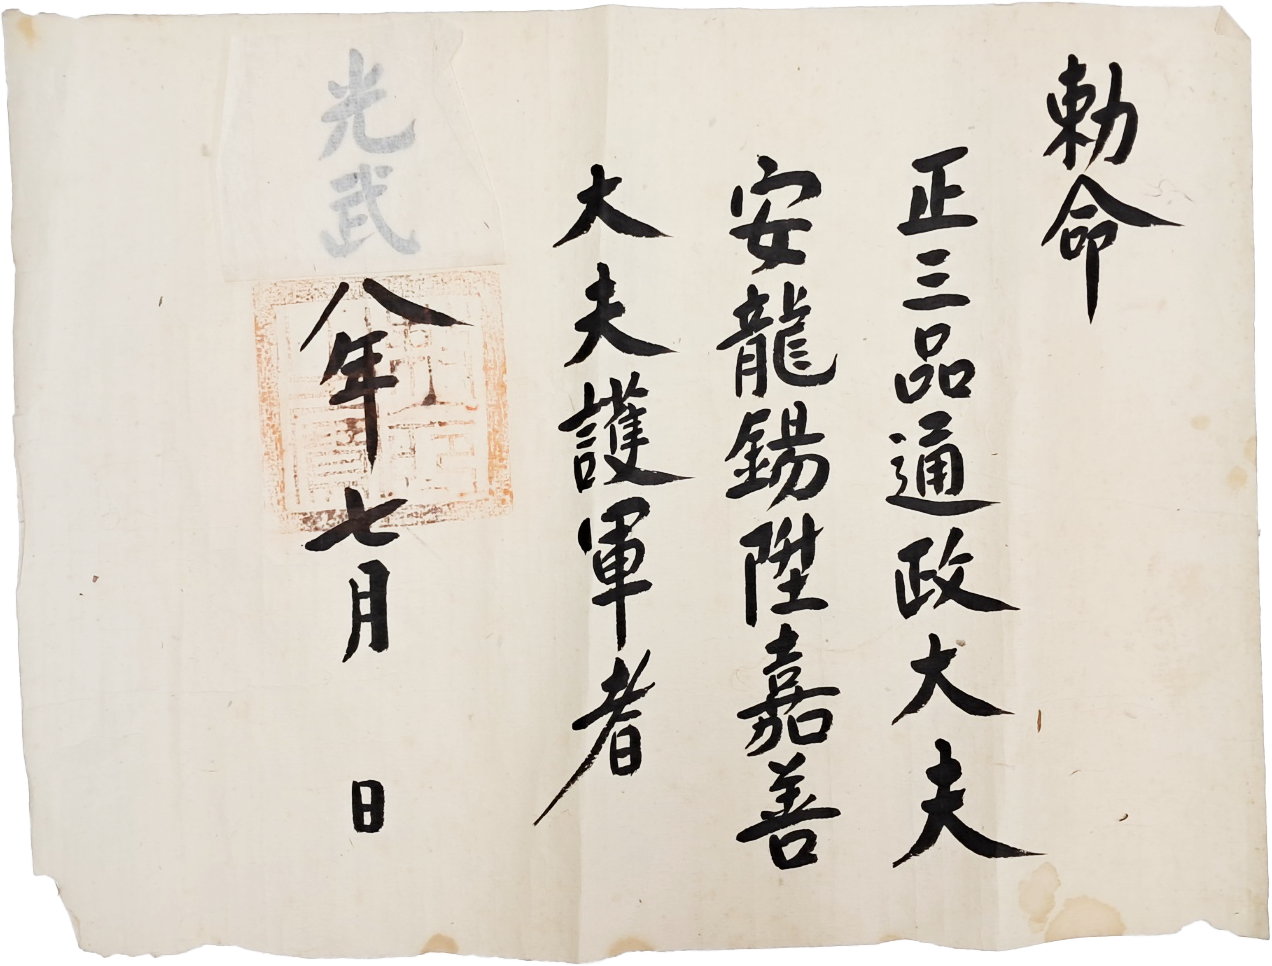 勅命
正三品通政大夫
安龍錫陞嘉善
大夫護軍者
光武八年七月 日